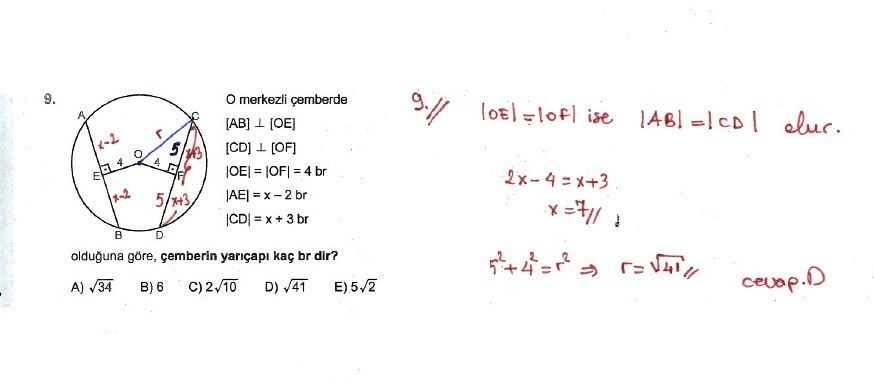 9.
O merkezli çemberde
[AB] ⊥ [OE]
[CD] ⊥ [OF]
|OE| = |OF| = 4 br
|AE| = x – 2 br
|CD| = x + 3 br
A
C
O
E
F
B
D
x-2
x-2
r
4
4
5
x+3
5
x+3
olduğuna göre, çemberin yarıçapı kaç br dir?
A) √34 B) 6 C) 2√10 D) √41 E) 5√2
9.//
|OE| = |OF| ise |AB| = |CD| olur.
2x - 4 = x+3
x = 7//
5² + 4² = r² ⇒ r = √41 //
cevap.D